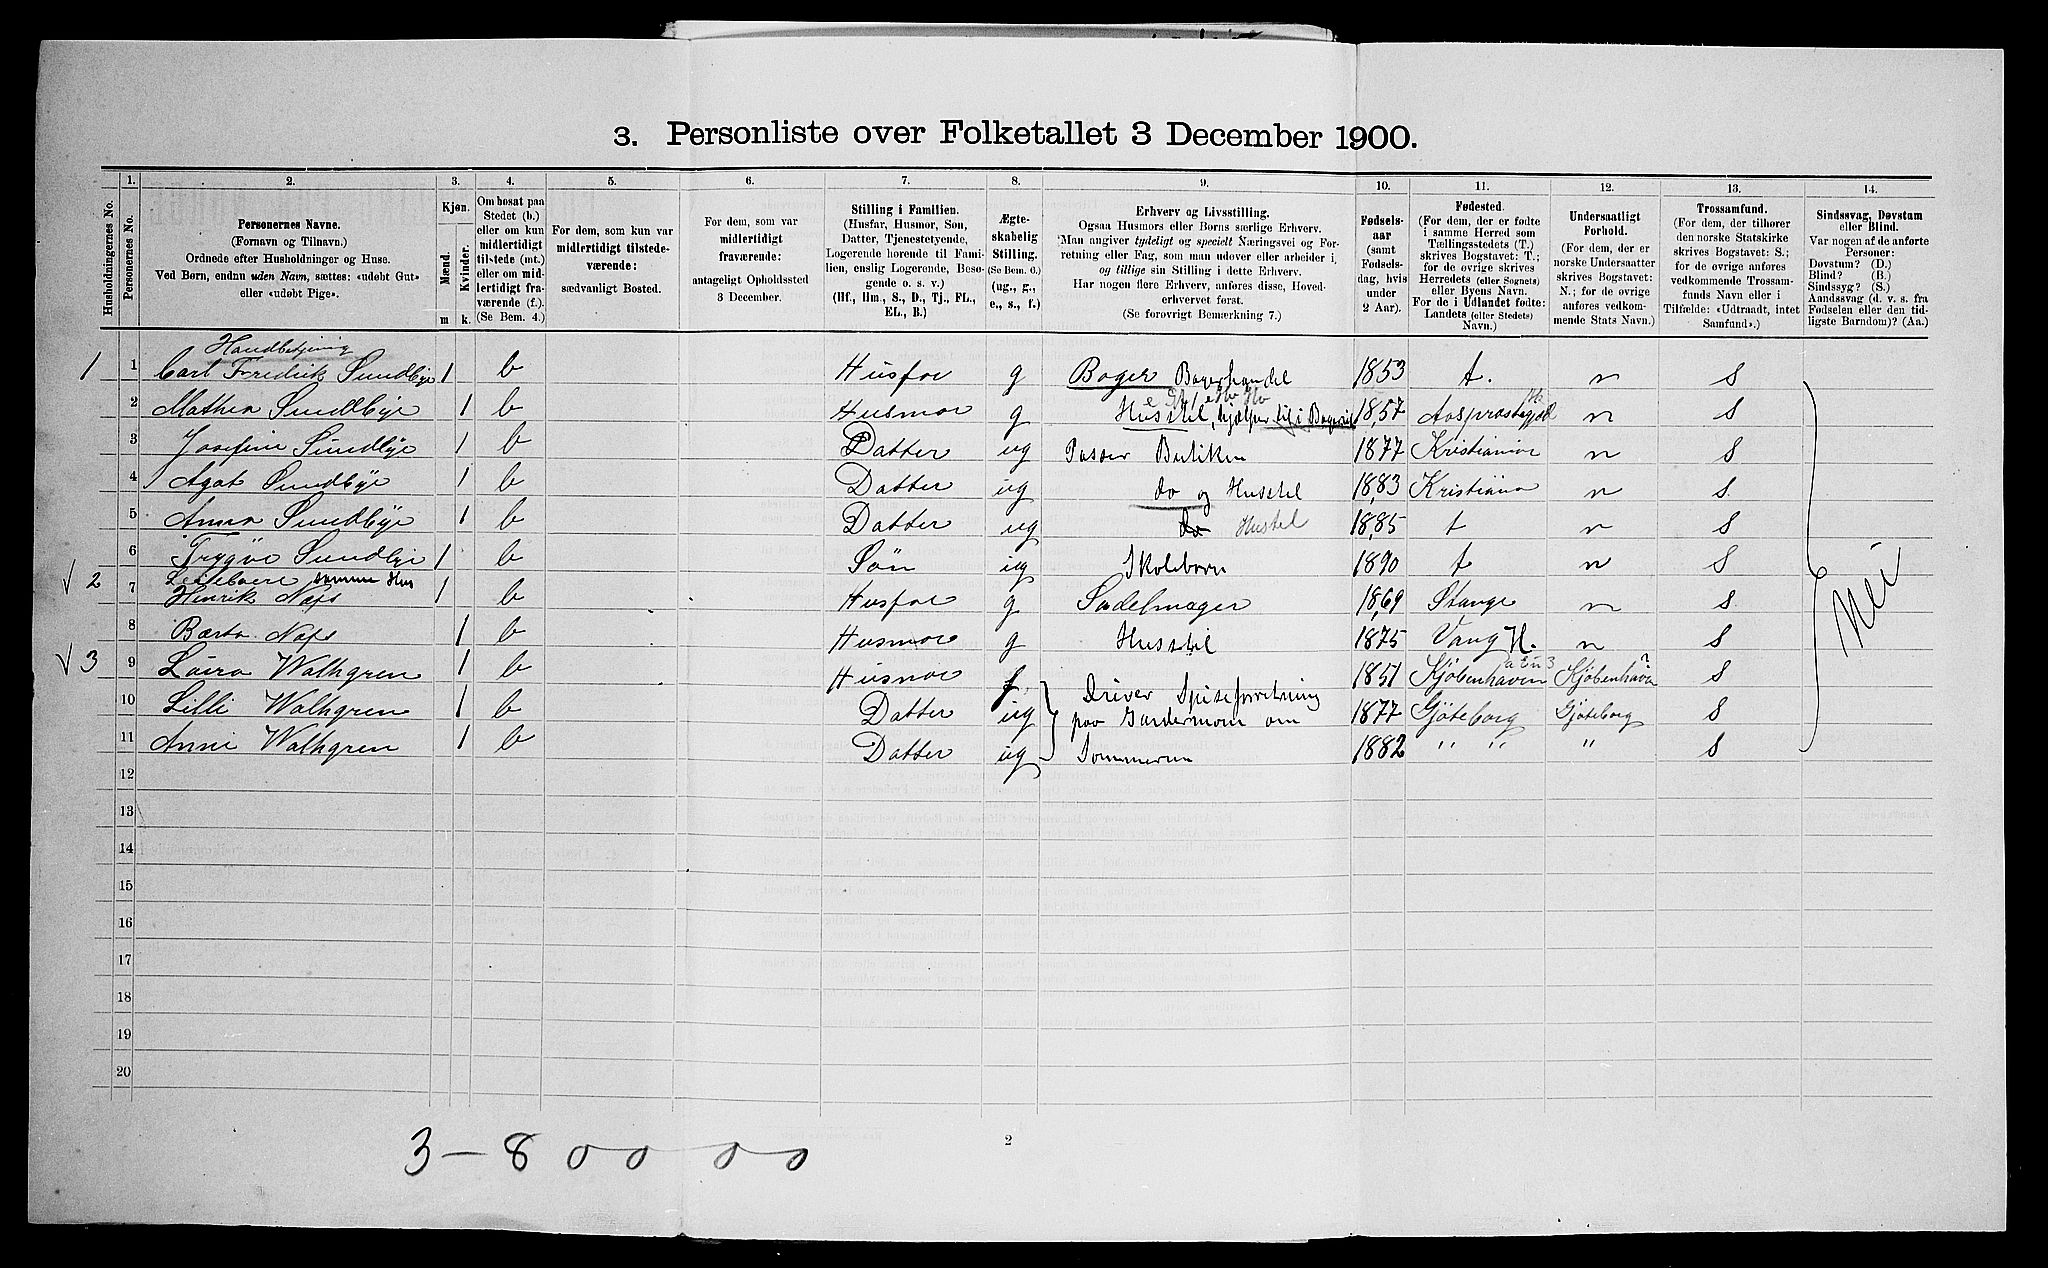 3. Personliste over Folketallet 3 December 1900.
Husholdningernes No.
1.
Personernes No.
2.
Personernes Navne.
(Fornavn og Tilnavn.)
Ordnede efter Husholdninger og Huse.
Ved Børn, endnu uden Navn, sættes: «udøbt Gut»
eller «udøbt Pige».
3.
Kjøn.
Mænd.
Kvinder.
m k.
4.
Om bosat paa
Stedet (b.)
eller om kun
midlertidigt
tilstede (mt.)
eller om mid-
lertidigt fra-
værende (f.).
(Se Bem. 4.)
5.
For dem, som kun var
midlertidigt tilstede-
værende:
sædvanligt Bosted.
6.
For dem, som var
midlertidigt
fraværende:
antageligt Opholdssted
3 December.
7.
Stilling i Familien.
(Husfar, Husmor, Søn,
Datter, Tjenestetyende,
Logerende hørende til Fami-
lien, enslig Logerende, Besø-
gende o. s. v.)
(Hf., Hm., S., D., Tj., FL.,
EL., B.)
8.
Ægte-
skabelig
Stilling.
(Se Bem. 6.)
(ug., g.,
e., s., f.)
9.
Erhverv og Livsstilling.
Ogsaa Husmors eller Børns særlige Erhverv.
Man angiver tydeligt og specielt Næringsvei og For-
retning eller Fag, som man udøver eller arbeider i,
og tillige sin Stilling i dette Erhverv.
Har nogen flere Erhverv, anføres disse, Hoved-
erhvervet først.
(Se forøvrigt Bemærkning 7.)
10.
Fødsels-
aar
(samt
Fødsels-
dag, hvis
under
2 Aar).
11.
Fødested.
(For dem, der er fødte
i samme Herred som
Tællingsstedets (T.)
skrives Bogstavet: T.;
for de øvrige skrives
Herredets (eller Sognets)
eller Byens Navn.
For de i Udlandet fødte:
Landets (eller Stedets)
Navn.)
12.
Undersaatligt
Forhold.
(For dem, der er
norske Undersaatter
skrives Bogstavet:
N.; for de øvrige
anføres vedkom-
mende Stats Navn.)
13.
Trossamfund.
(For dem, der tilhører
den norske Statskirke
skrives Bogstavet: S.;
for de øvrige anføres
vedkommende Trossam-
funds Navn eller i
Tilfælde: «Udtraadt, intet
Samfund».)
14.
Sindssvag, Døvstum
eller Blind.
Var nogen af de anførte
Personer:
Døvstum? (D.)
Blind? (B.)
Sindssyg? (S.)
Aandssvag (d. v. s. fra
Fødselen eller den tid-
ligste Barndom)? (Aa.)
1 1 Carl Fredrik Sundbye 1 b Husfar g Bager Bagerhandel 1853 t. n S
2 Mathea Sundbye 1 b Husmor g Husstel, hjælper til i Bageriet 1857 n S
3 Josefine Sundbye 1 b Datter ug Passer Butiken 1877 Kristiania n S
4 Agot Sundbye 1 b Datter ug do og Husstel 1883 Kristiania n S
5 Anna Sundbye 1 b Datter ug do Husstel 1885 t n S
6 Trygve Sundbye 1 b Søn ug Skolebarn 1890 t n S
Leieboere samme Hus
√ 2 7 Henrik Næss 1 b Husfar g Sadelmager 1869 Stange n S
8 Berta Næss 1 b Husmor g Husstel 1875 Vang H. n S
√ 3 9 Laura Walhgren 1 b Husmor f Driver Spiseforretning 1851 Kjøbenhavn Kjøbenhavn ? S
10 Lilli Walhgren 1 b Datter ug paa Gardermoen om 1877 Gjøteborg Gjøteborg S
11 Anni Walhgren 1 b Datter ug Sommeren 1882 " " " S
Nei
12
13
14
15
16
17
18
19
20
3–80000
2